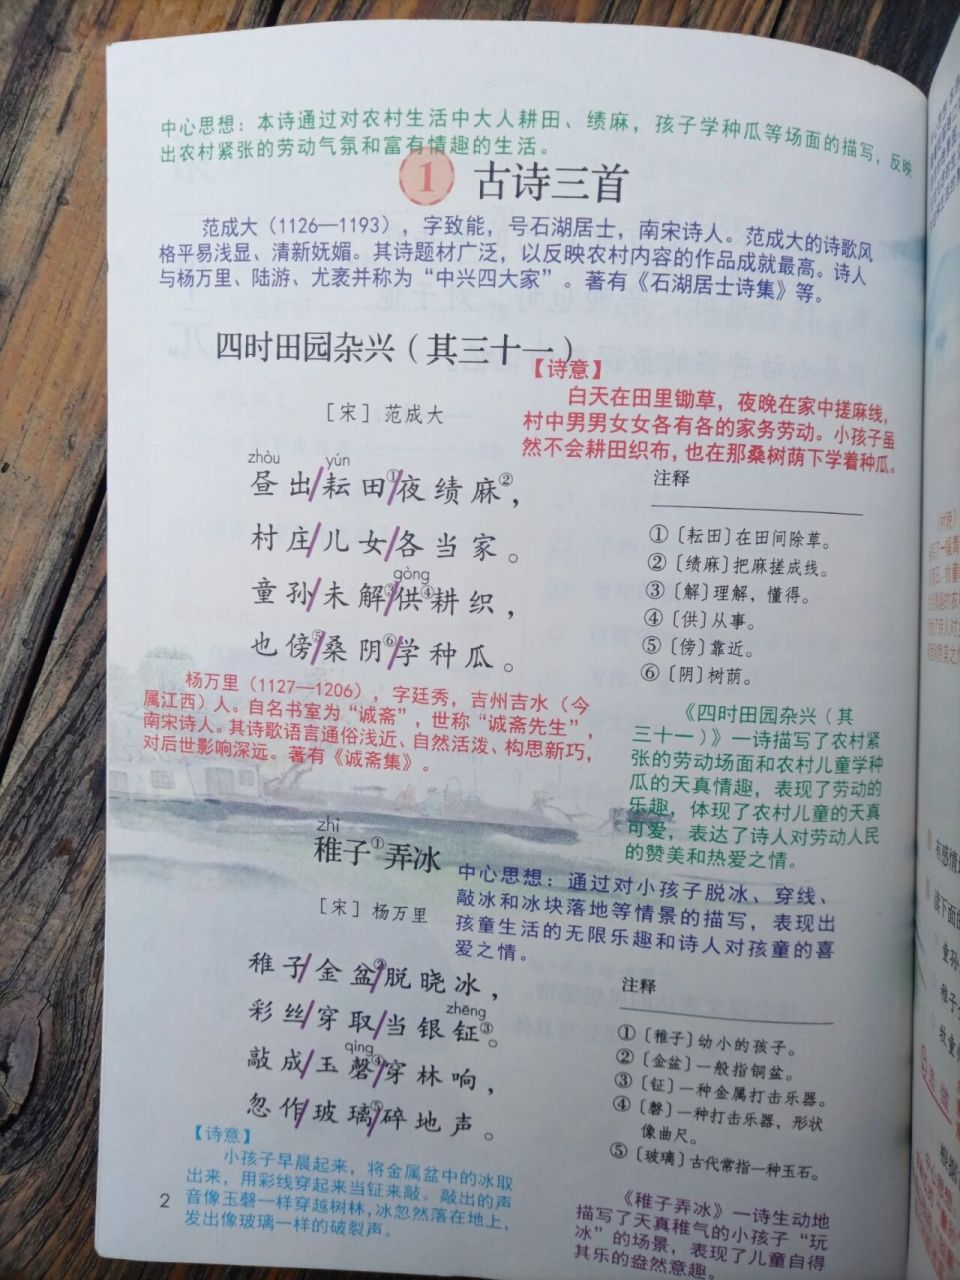 中心思想：本诗通过对农村生活中大人耕田、绩麻，孩子学种瓜等场面的描写，反映
出农村紧张的劳动气氛和富有情趣的生活。
1 古诗三首
范成大（1126—1193），字致能，号石湖居士，南宋诗人。范成大的诗歌风
格平易浅显、清新妩媚。其诗题材广泛，以反映农村内容的作品成就最高。诗人
与杨万里、陆游、尤袤并称为“中兴四大家”。著有《石湖居士诗集》等。
四时田园杂兴（其三十一）
［宋］范成大
【诗意】
白天在田里锄草，夜晚在家中搓麻线，
村中男男女女各有各的家务劳动。小孩子虽
然不会耕田织布，也在那桑树荫下学着种瓜。
zhòu yún
昼出/耘田①/夜绩麻②，
村庄/儿女/各当家。
gòng
童孙/未解③/供④耕织，
也傍⑤/桑阴⑥/学种瓜。
注释
①〔耘田〕在田间除草。
②〔绩麻〕把麻搓成线。
③〔解〕理解，懂得。
④〔供〕从事。
⑤〔傍〕靠近。
⑥〔阴〕树荫。
杨万里（1127—1206），字廷秀，吉州吉水（今
属江西）人。自名书室为“诚斋”，世称“诚斋先生”，
南宋诗人。其诗歌语言通俗浅近、自然活泼、构思新巧，
对后世影响深远。著有《诚斋集》。
《四时田园杂兴（其
三十一）》一诗描写了农村紧
张的劳动场面和农村儿童学种
瓜的天真情趣，表现了劳动的
乐趣，体现了农村儿童的天真
可爱，表达了诗人对劳动人民
的赞美和热爱之情。
zhì
稚子①弄冰
［宋］杨万里
中心思想：通过对小孩子脱冰、穿线、
敲冰和冰块落地等情景的描写，表现出
孩童生活的无限乐趣和诗人对孩童的喜
爱之情。
稚子/金盆②/脱晓冰，
zhēng
彩丝/穿取/当银钲③。
qìng
敲成/玉磬④/穿林响，
忽作/玻璃⑤/碎地声。
注释
①〔稚子〕幼小的孩子。
②〔金盆〕一般指铜盆。
③〔钲〕一种金属打击乐器。
④〔磬〕一种打击乐器，形状
像曲尺。
⑤〔玻璃〕古代常指一种玉石。
【诗意】
小孩子早晨起来，将金属盆中的冰取
出来，用彩线穿起来当钲来敲。敲出的声
音像玉磬一样穿越树林，冰忽然落在地上，
发出像玻璃一样的破裂声。
《稚子弄冰》一诗生动地
描写了天真稚气的小孩子“玩
冰”的场景，表现了儿童自得
其乐的盎然意趣。
2
有感情
读下面的
童孙
稚子
牧童